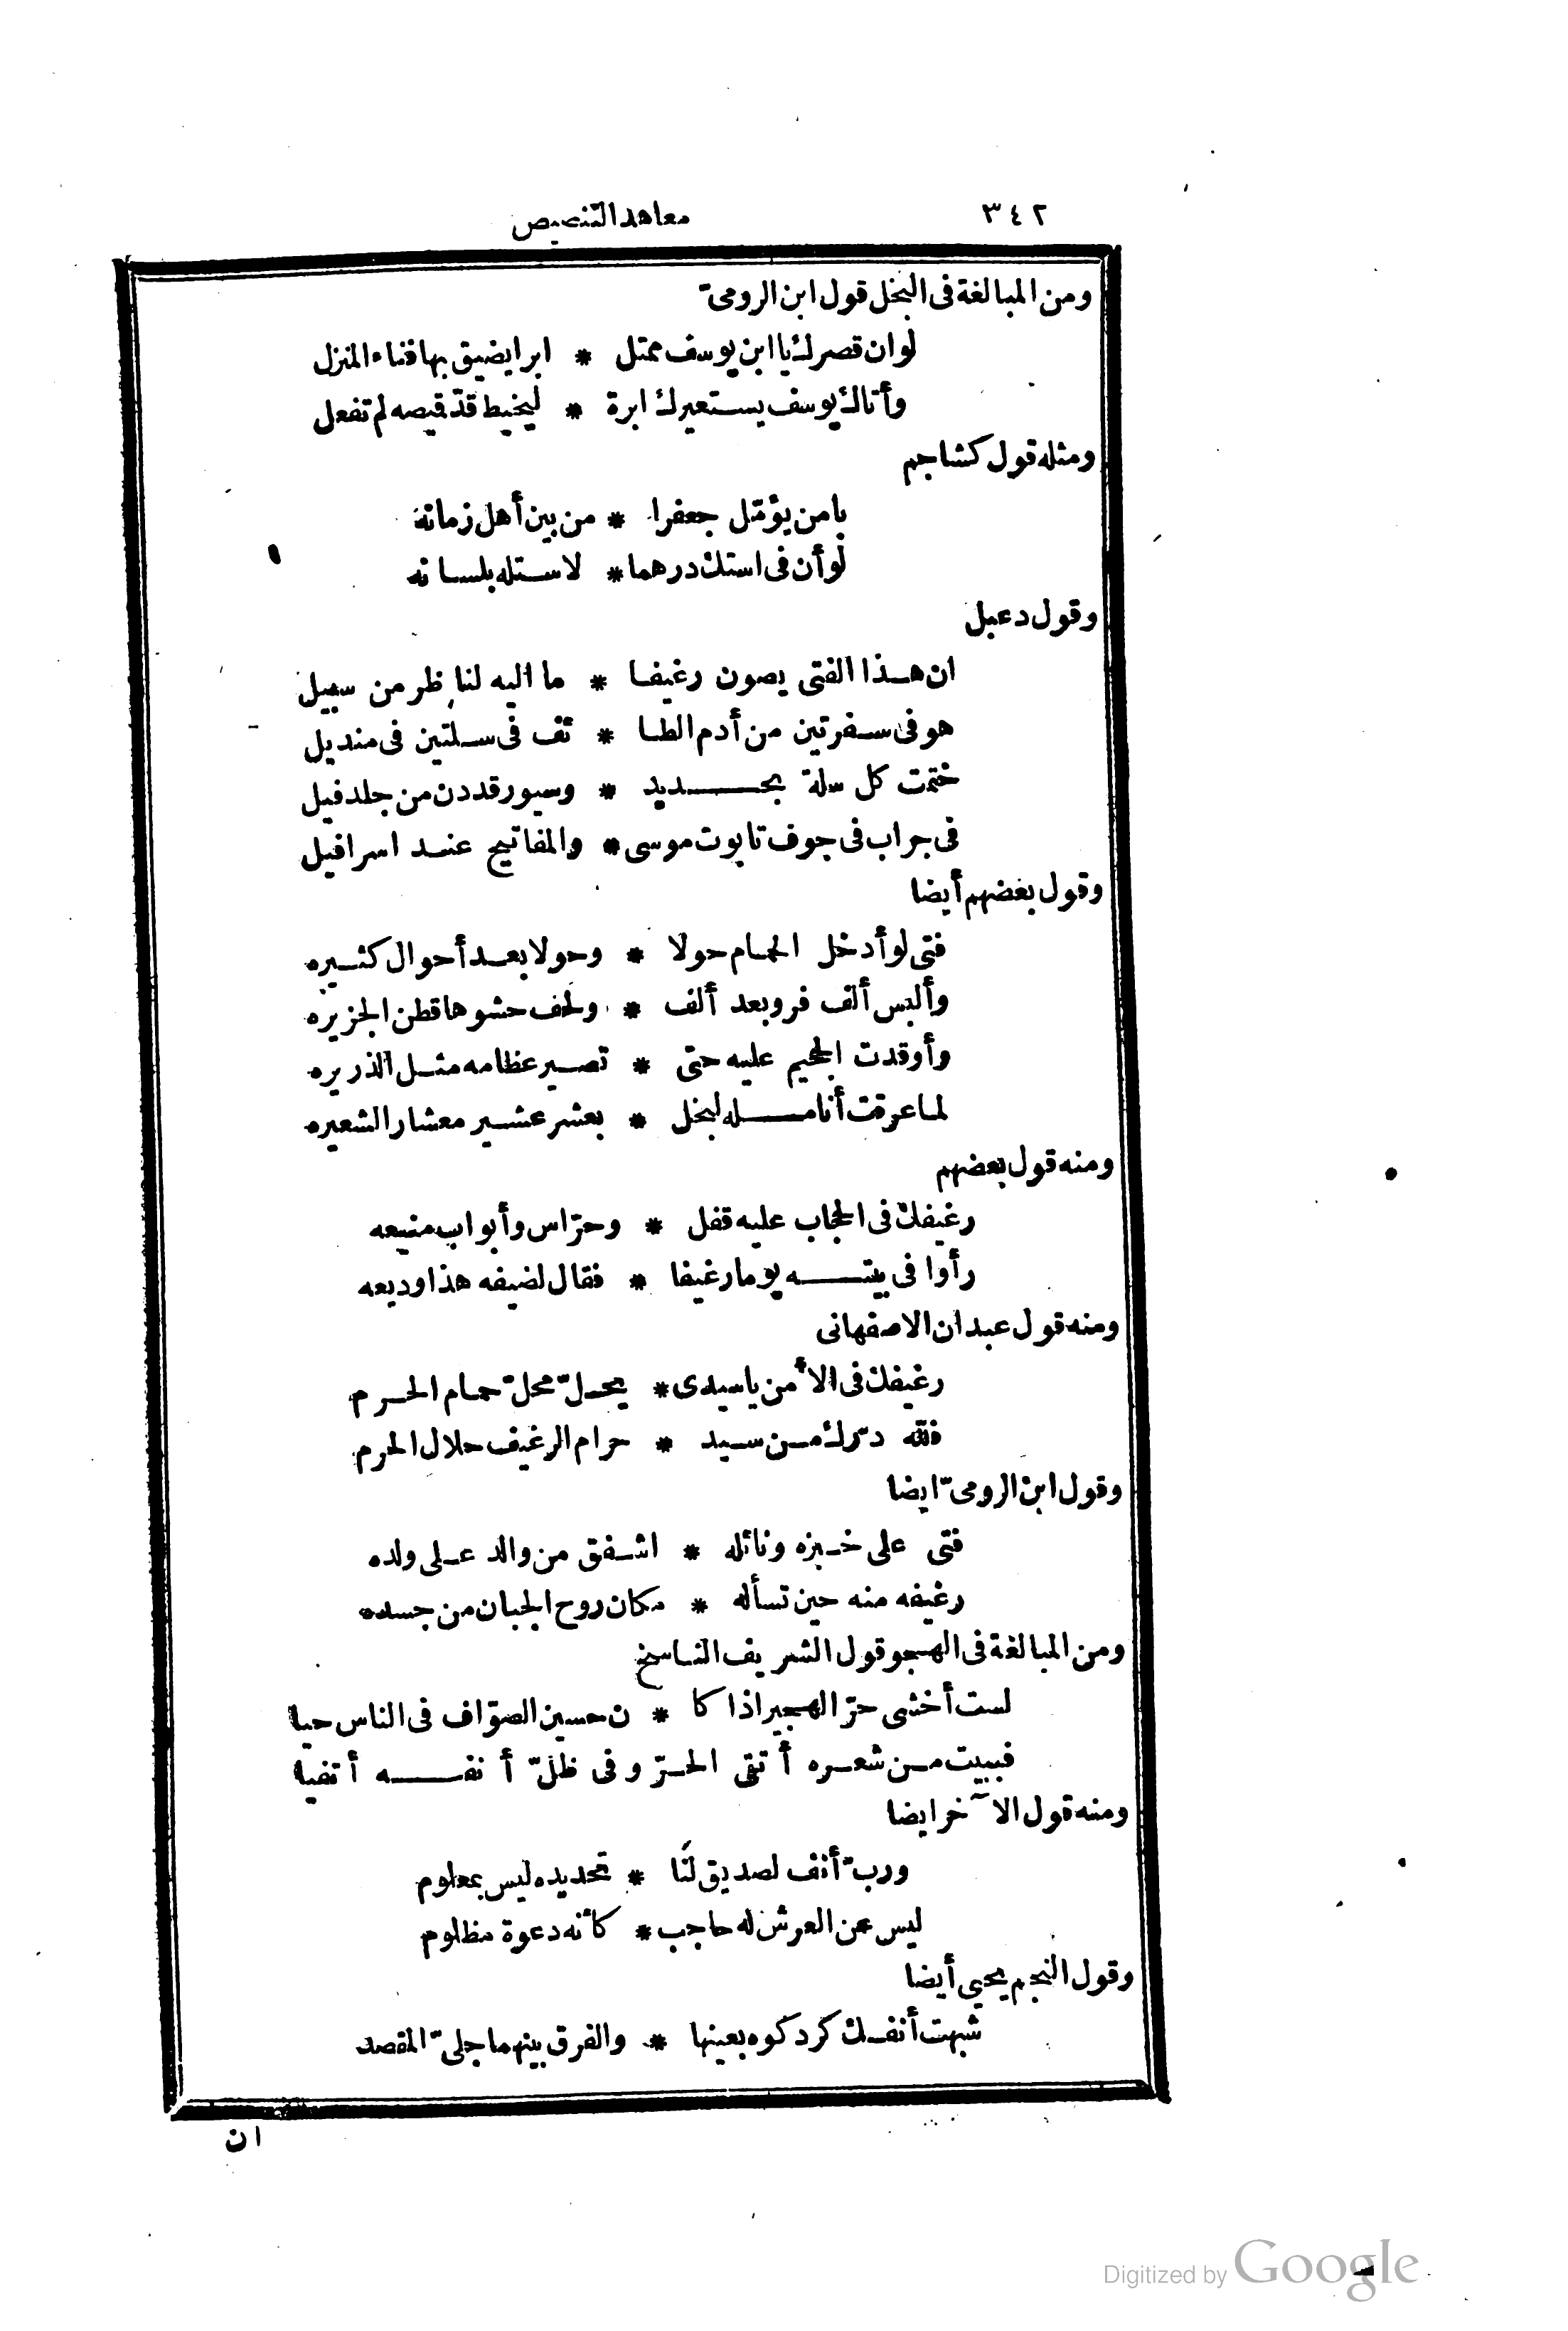 ٣٤٢ معاهد التنصيص
ومن المبالغة فى البخل قول ابن الرومىّ
لو ان قصرك يا ابن يوسف ممتل * ابرا يضيق بها فناء المنزل
وأتاك يوسف يستعيرك ابرة * ليخيط قدّ قميصه لم تفعل
ومثله قول كشاجم
يا من يؤمّل جعفرا * من بين أهل زمانه
لو أن فى استك درهما * لاستله بلسانه
وقول دعبل
ان هذا الفتى يصون رغيفا * ما اليه لناظر من سبيل
هو فى سفرتين من أدم الطا * ئف فى سلتين فى منديل
ختمت كل سلة بحديد * وسيور قددن من جلد فيل
فى جراب فى جوف تابوت موسى * والمفاتيح عند اسرافيل
وقول بعضهم أيضا
فتى لو أدخل الحمام حولا * وحولا بعد أحوال كثيره
وألبس ألف فرو بعد ألف * ولحف حشوها قطن الجزيره
وأوقدت الجحيم عليه حتى * تصير عظامه مثل الذريره
لما عرقت أنامله لبخل * بعشر عشير معشار الشعيره
ومنه قول بعضهم
رغيفك فى الحجاب عليه قفل * وحرّاس وأبواب منيعه
رأوا فى بيته يوما رغيفا * فقال لضيفه هذا وديعه
ومنه قول عبدان الاصفهانى
رغيفك فى الأمن يا سيدى * يحلّ محلّ حمام الحرم
فلله درّك من سيد * حرام الرغيف حلال الحرم
وقول ابن الرومىّ ايضا
فتى على خبزه ونائله * اشفق من والد على ولده
رغيفه منه حين تسأله * مكان روح الجبان من جسده
ومن المبالغة فى الهجو قول الشريف الناسخ
لست أخشى حرّ الهجير اذا كا * ن حسين الصوّاف فى الناس حيا
فببيت من شعره أتقى الحرّ وفى ظلّ أنفه أتفيا
ومنه قول الآخر ايضا
وربّ أنف لصديق لنا * تحديده ليس بمعلوم
ليس عن العرش له حاجب * كأنه دعوة مظلوم
وقول النجم يحيى أيضا
شبهت أنفك كردكوه بعينها * والفرق بينهما جلىّ المقصد
ان
Digitized by Google